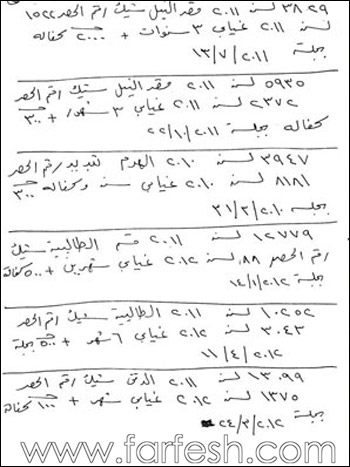 ٣٨٢٩ لسنة ٢٠١١ قصر النيل شيك رقم الحصر ١٥٢٢
لسنة ٢٠١١ غيابي ٣ سنوات + ٢٠٠٠ كفالة
جلسة ١٣/٧/٢٠١١
٥٩٣٥ لسنة ٢٠١١ قصر النيل شيك رقم الحصر
٢٣٧٢ لسنة ٢٠١١ غيابي ٣ شهور + ٣٠٠
كفالة جلسة ٢٢/١٠/٢٠١١
٣٩٤٧ لسنة ٢٠١٠ الهرم تبديد رقم الحصر
٨١٨١ لسنة ٢٠١٠ غيابي سنة وكفالة ٣٠٠
جلسة ٣١/٣/٢٠١٠
١٢٧٧٩ لسنة ٢٠١١ قسم الطالبية شيك
رقم الحصر ٨٨ لسنة ٢٠١٢ غيابي شهرين + ٥٠٠ كفالة
جلسة ١٤/١/٢٠١٢
١٠٢٥٢ لسنة ٢٠١١ الطالبية شيك رقم الحصر
٣٠٤٣ لسنة ٢٠١٢ غيابي ٦ شهر + ٥٠٠ جلسة
١١/٤/٢٠١٢
١٣٠٩٩ لسنة ٢٠١١ الدقي شيك رقم الحصر
١٣٧٥ لسنة ٢٠١٢ غيابي شهر + ١٠٠ كفالة
جلسة ٢٤/٣/٢٠١٢
www.farfesh.com